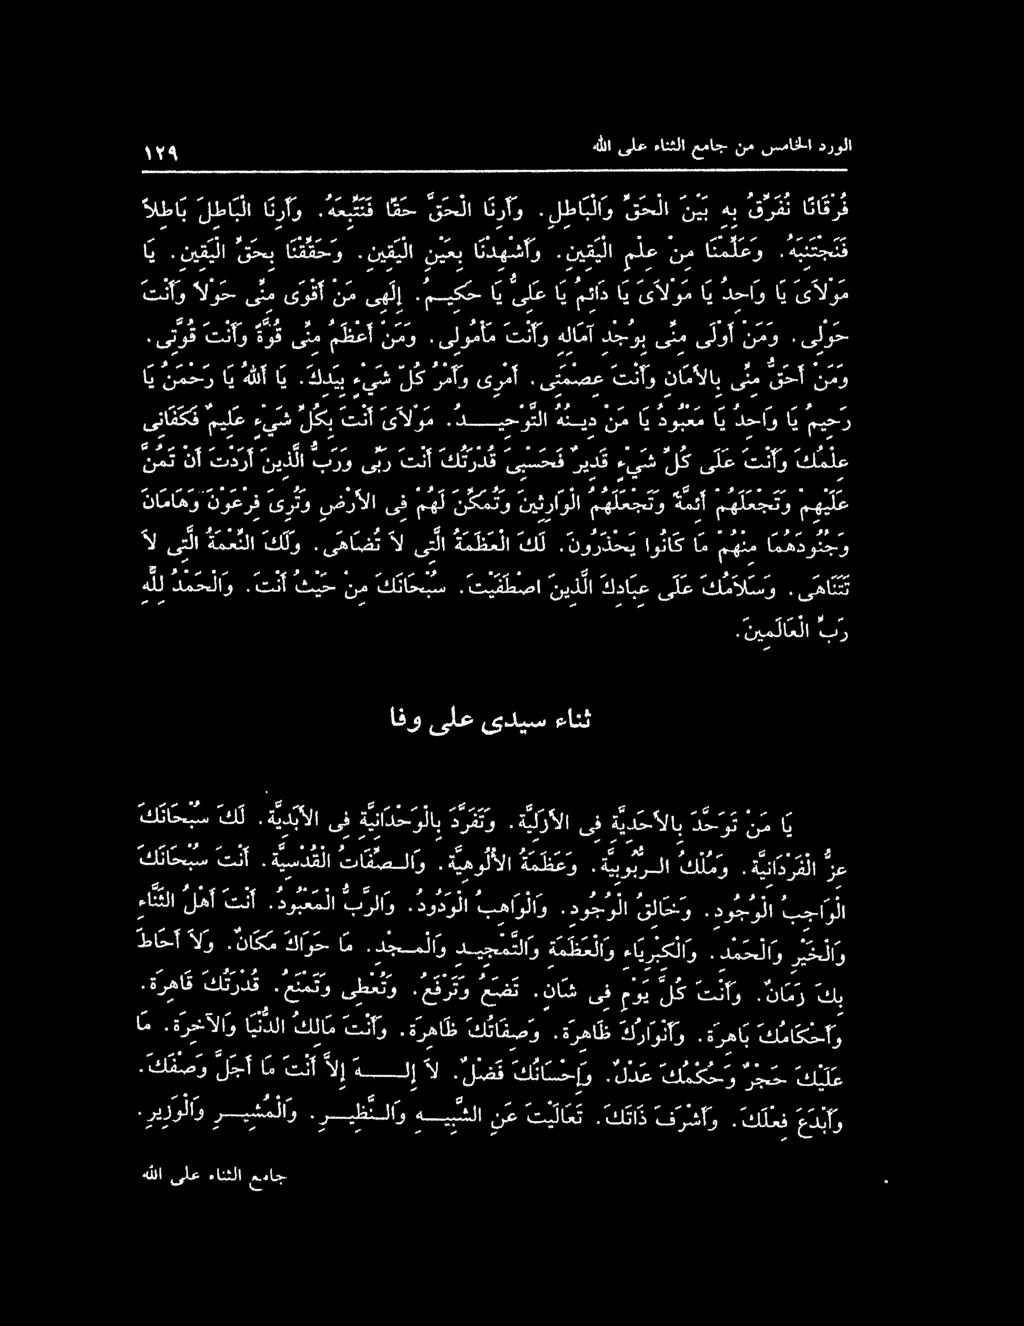 الورد الخامس من جامع الثناء على الله
١٢٩
فُرْقَانًا نُفَرِّقُ بِهِ بَيْنَ الْحَقِّ وَالْبَاطِلِ. وَأَرِنَا الْحَقَّ حَقًّا فَنَتَّبِعَهُ. وَأَرِنَا الْبَاطِلَ بَاطِلاً
فَنَجْتَنِبَهُ. وَعَلِّمْنَا مِنْ عِلْمِ الْيَقِينِ. وَأَشْهِدْنَا بِعَيْنِ الْيَقِينِ. وَحَقِّقْنَا بِحَقِّ الْيَقِينِ. يَا
مَوْلاَىَ يَا وَاحِدُ يَا مَوْلاَىَ يَا دَائِمُ يَا عَلِىُّ يَا حَكِيـمُ. إِلَهِى مَنْ أَقْوَى مِنِّى حَوْلاً وَأَنْتَ
حَوْلِى. وَمَنْ أَوْلَى مِنِّى بِوُجْدِ آمَالِهِ وَأَنْتَ مَأْمُولِى. وَمَنْ أَعْظَمُ مِنِّى قُوَّةً وَأَنْتَ قُوَّتِى.
وَمَنْ أَحَقُّ مِنِّى بِالأَمَانِ وَأَنْتَ عِصْمَتِى. أَمْرِى وَأَمْرُ كُلِّ شَىْءٍ بِيَدِكَ. يَا أَللهُ يَا رَحْمَنُ يَا
رَحِيمُ يَا وَاحِدُ يَا مَعْبُودُ يَا مَنْ دِيـنُهُ التَّوْحِيـــدُ. مَوْلاَىَ أَنْتَ بِكُلِّ شَىْءٍ عَلِيمٌ فَكَفَانِى
عِلْمُكَ وَأَنْتَ عَلَى كُلِّ شَىْءٍ قَدِيرٌ فَحَسْبِىَ قُدْرَتُكَ أَنْتَ رَبِّى وَرَبُّ الَّذِينَ أَرَدْتَ أَنْ تَمُنَّ
عَلَيْهِمْ وَتَجْعَلَهُمْ أَئِمَّةً وَتَجْعَلَهُمُ الْوَارِثِينَ وَتُمَكِّنَ لَهُمْ فِى الأَرْضِ وَتُرِىَ فِرْعَوْنَ وَهَامَانَ
وَجُنُودَهُمَا مِنْهُمْ مَا كَانُوا يَحْذَرُونَ. لَكَ الْعَظَمَةُ الَّتِى لاَ تُضَاهَى. وَلَكَ النِّعْمَةُ الَّتِى لاَ
تَتَنَاهَى. وَسَلاَمُكَ عَلَى عِبَادِكَ الَّذِينَ اصْطَفَيْتَ. سُبْحَانَكَ مِنْ حَيْثُ أَنْتَ. وَالْحَمْدُ لِلَّهِ
رَبِّ الْعَالَمِينَ.
ثناء سيدى على وفا
يَا مَنْ تَوَحَّدَ بِالأَحَدِيَّةِ فِى الأَزَلِيَّةِ. وَتَفَرَّدَ بِالْوَحْدَانِيَّةِ فِى الأَبَدِيَّةِ. لَكَ سُبْحَانَكَ
عِزُّ الْفَرْدَانِيَّةِ. وَمُلْكُ الـرُّبُوبِيَّةِ. وَعَظَمَةُ الأُلُوهِيَّةِ. وَالـصِّفَاتُ الْقُدْسِيَّةِ. أَنْتَ سُبْحَانَكَ
الْوَاجِبُ الْوُجُودِ. وَخَالِقُ الْوُجُودِ. وَالْوَاهِبُ الْوَدُودُ. وَالرَّبُّ الْمَعْبُودُ. أَنْتَ أَهْلُ الثَّنَاءِ
وَالْخَيْرِ وَالْحَمْدِ. وَالْكِبْرِيَاءِ وَالْعَظَمَةِ وَالتَّمْجِيـدِ وَالْمَـجْدِ. مَا حَوَاكَ مَكَانٌ. وَلاَ أَحَاطَ
بِكَ زَمَانٌ. وَأَنْتَ كُلَّ يَوْمٍ فِى شَانٍ. تَضَعُ وَتَرْفَعُ. وَتُعْطِى وَتَمْنَعُ. قُدْرَتُكَ قَاهِرَةٌ.
وَأَحْكَامُكَ بَاهِرَةٌ. وَأَنْوَارُكَ ظَاهِرَةٌ. وَصِفَاتُكَ ظَاهِرَةٌ. وَأَنْتَ مَالِكُ الدُّنْيَا وَالآخِرَةِ. مَا
عَلَيْكَ حَجْرٌ وَحُكْمُكَ عَدْلٌ. وَإِحْسَانُكَ فَضْلٌ. لاَ إِلـــهَ إِلاَّ أَنْتَ مَا أَجَلَّ وَصْفَكَ.
وَأَبْدَعَ فِعْلَكَ. وَأَشْرَفَ ذَاتَكَ. تَعَالَيْتَ عَنِ الشَّبِيـهِ وَالـنَّظِيـرِ. وَالْمُشِيـرِ وَالْوَزِيرِ.
جامع الثناء على الله